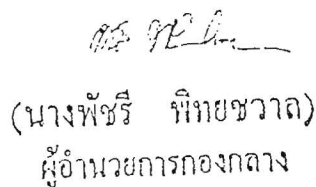 (นางพัชรี พิทยชวาล)
ผู้อำนวยการกองกลาง